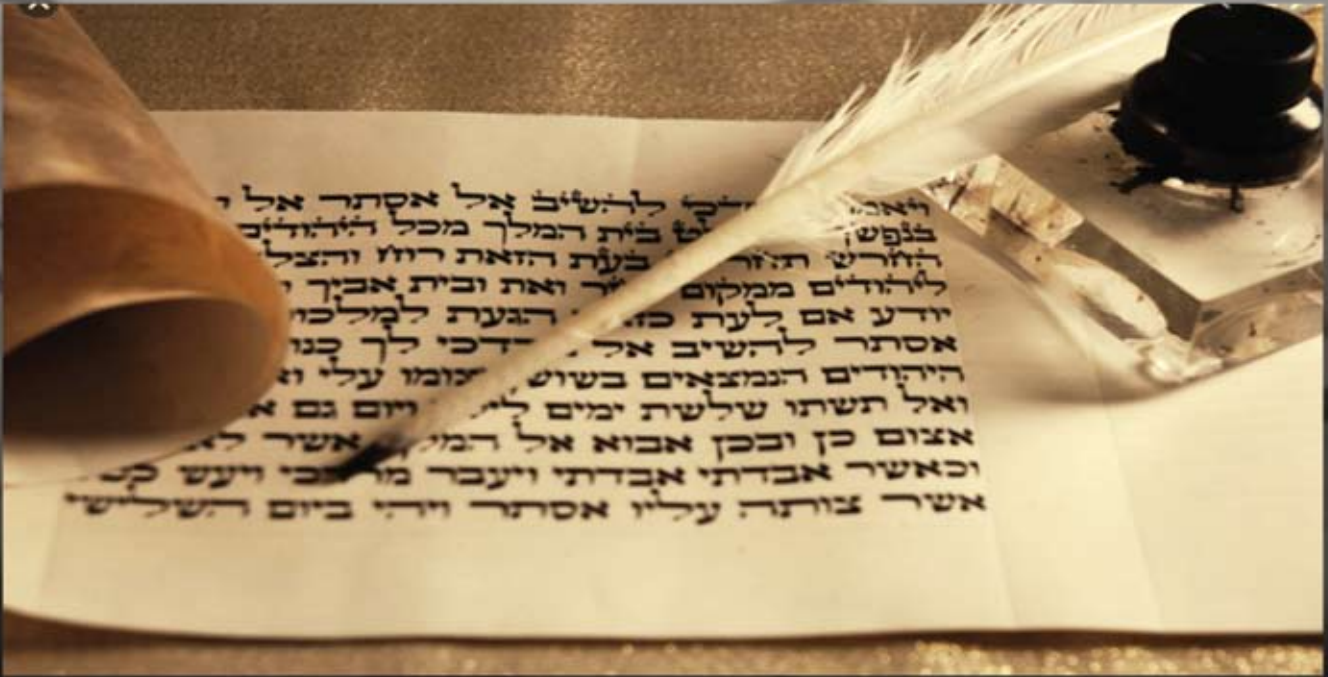 ויאמר להשיב אל אסתר אל
בנפשך בית המלך מכל היהודים
בעת הזאת רוח והצל
ליהודים ממקום ואת ובית אביך
יודע אם לעת הגעת למלכו
אסתר להשיב אל דכי לך כנו
היהודים הנמצאים בשוש צומו עלי וא
ואל תשתו שלשת ימים לי ויום גם א
אצום כן ובכן אבוא אל המלך אשר לא
וכאשר אבדתי אבדתי ויעבר מרדכי ויעש ככ
אשר צותה עליו אסתר ויהי ביום השלישי